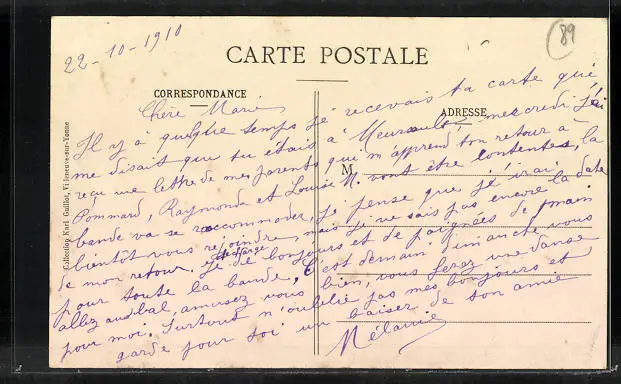 22-10-1910
89
CARTE POSTALE
CORRESPONDANCE
ADRESSE
M
Collection Karl Guillot, Villeneuve-sur-Yonne
Chère Marie
Il y à quelque temps je recevais ta carte qui
me disait que tu étais à Meursault, mercredi j'ai
reçu une lettre de mes parents qui m'apprend ton retour à
Pommard, Raymonde et Louise M. vont être contentes, la
bande va se raccommoder, je pense que j'irai
bientôt vous rejoindre mais je ne sais pas encore la date
de mon retour. Je te charge de bonjours et de poignées de main
pour toute la bande, c'est demain dimanche vous
allez au bal, amusez vous bien, vous ferez une danse
pour moi. Surtout n'oublie pas mes bonjours et
garde pour toi un baiser de ton amie
Mélanie